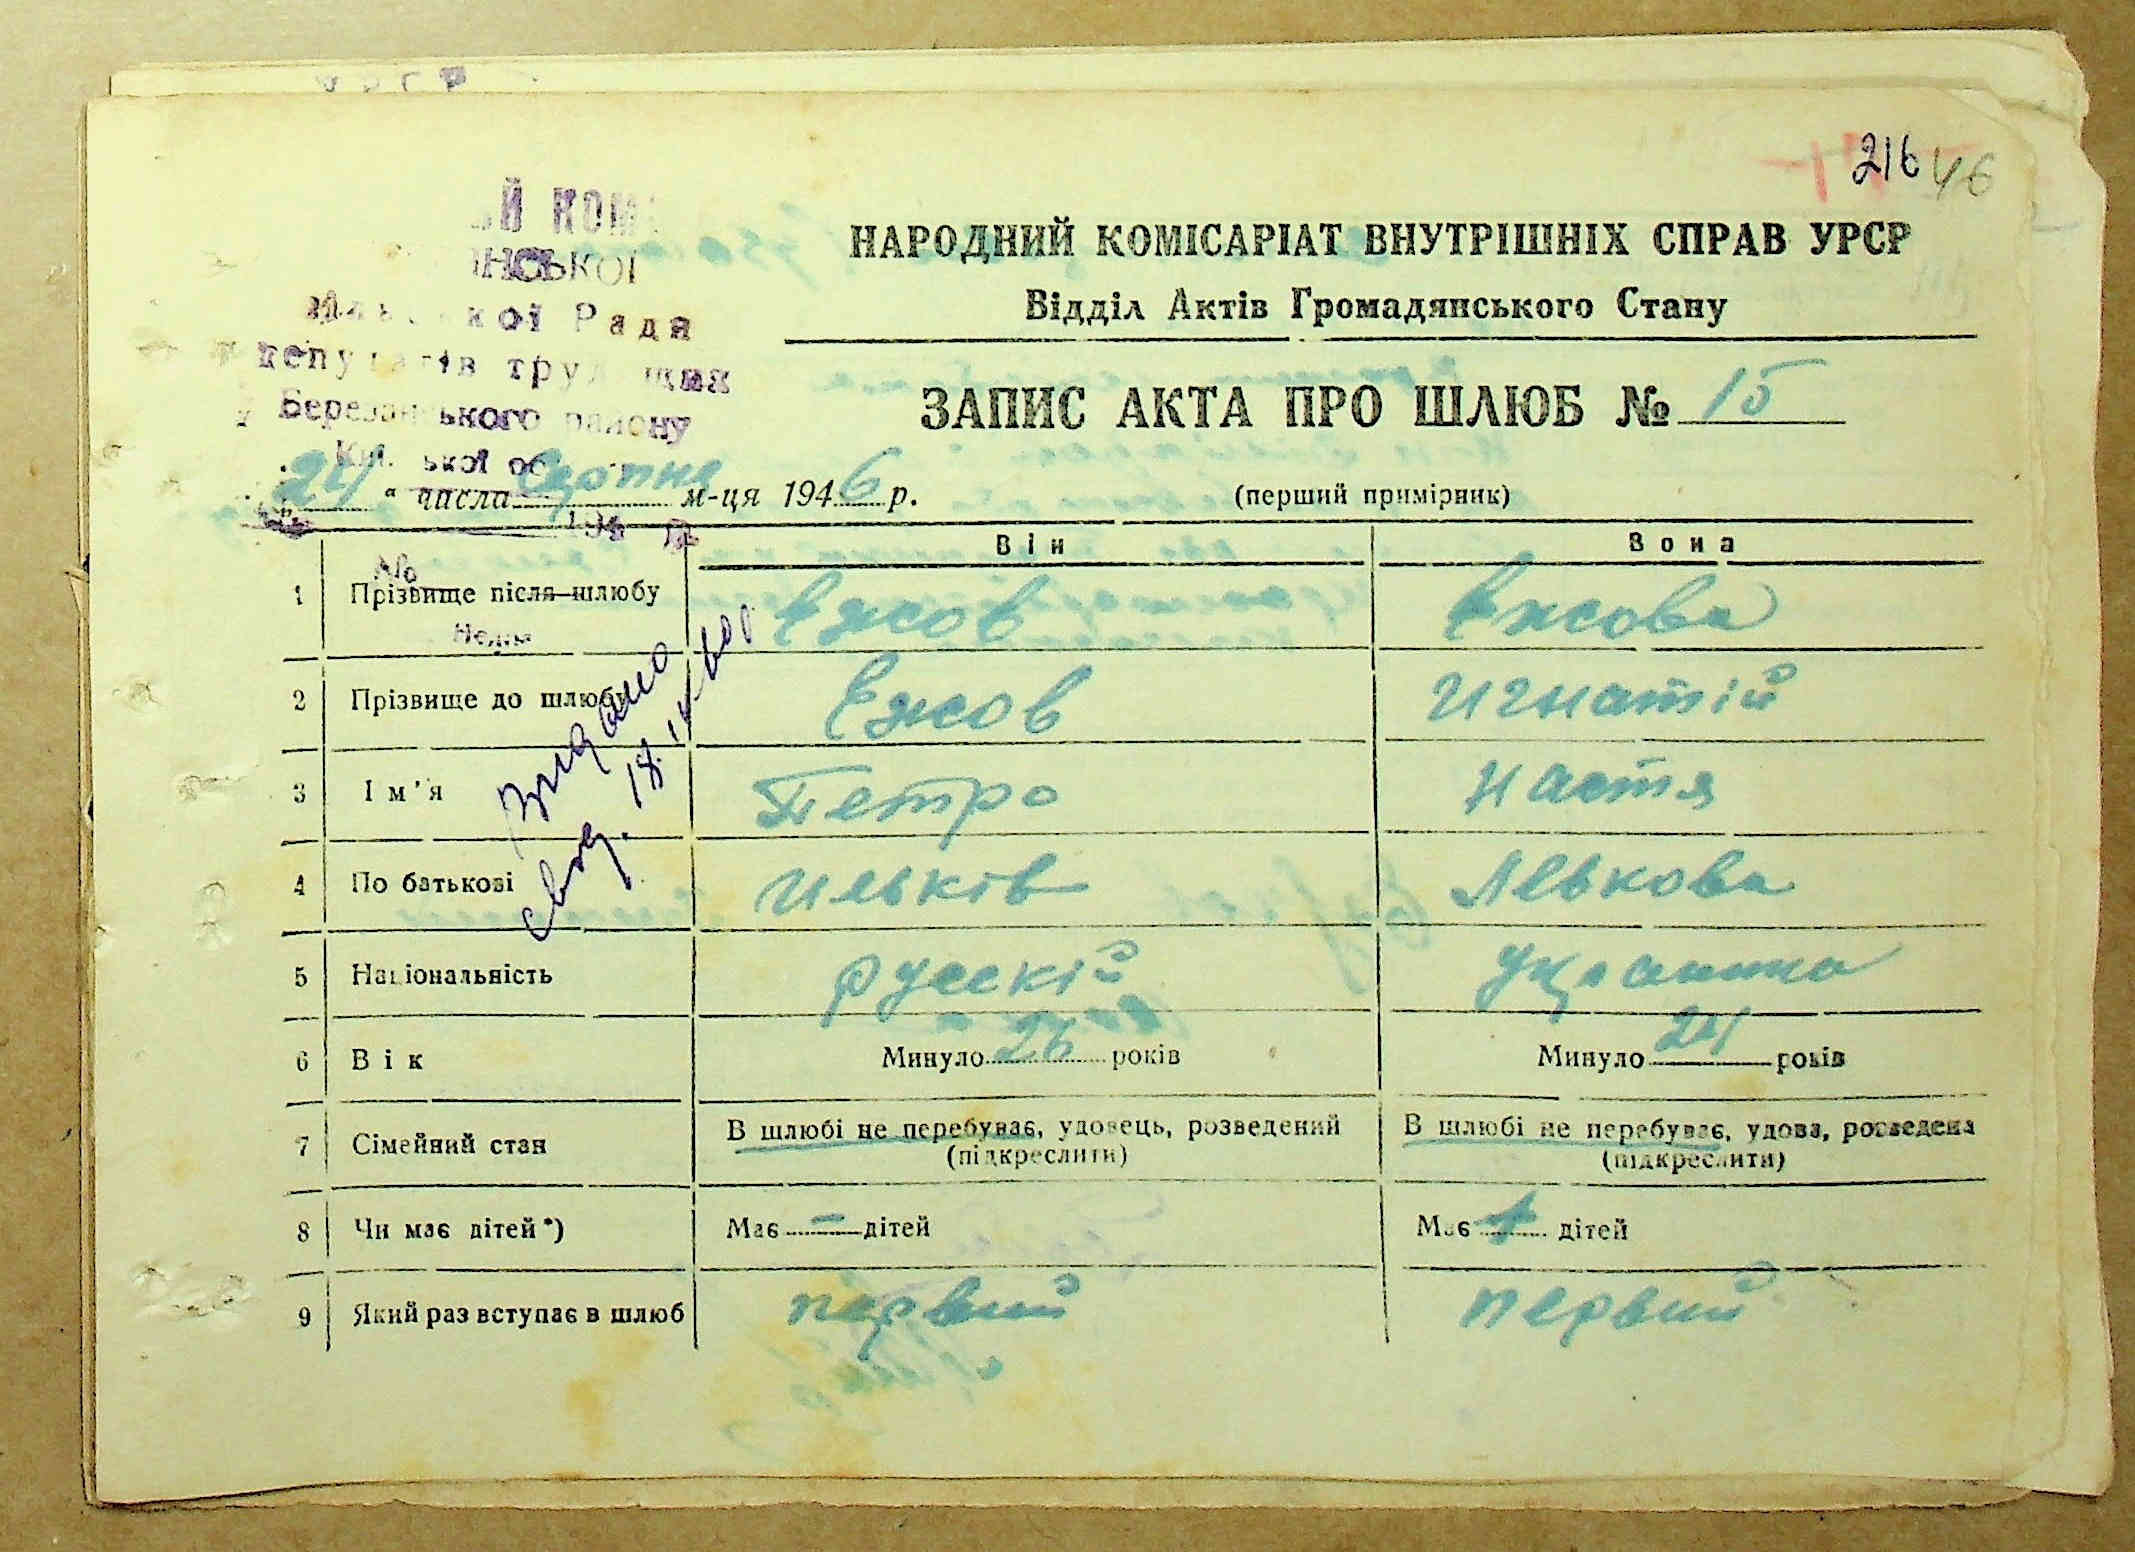 216 46
НАРОДНИЙ КОМІСАРІАТ ВНУТРІШНІХ СПРАВ УРСР
Відділ Актів Громадянського Стану
ЗАПИС АКТА ПРО ШЛЮБ № 15
ИЙ КОМ
НСЬКОЇ
кої Ради
депутатів трудящих
Березанського району
24 " числа серпня м-ця 1946 р.
(перший примірник)
194 р.
Він Вона
№
1 Прізвище після шлюбу Ежов Ежова
2 Прізвище до шлюбу Ежов Игнатій
3 Ім'я Петро Настя
4 По батькові Ильків Левкова
5 Національність русскій украинка
6 Вік Минуло 26 років Минуло 24 років
7 Сімейний стан В шлюбі не перебуває, удовець, розведений (підкреслити) В шлюбі не перебуває, удова, розведена (підкреслити)
8 Чи має дітей*) Має - дітей Має 1 дітей
9 Який раз вступає в шлюб первий первий
Видано
свид. 18.